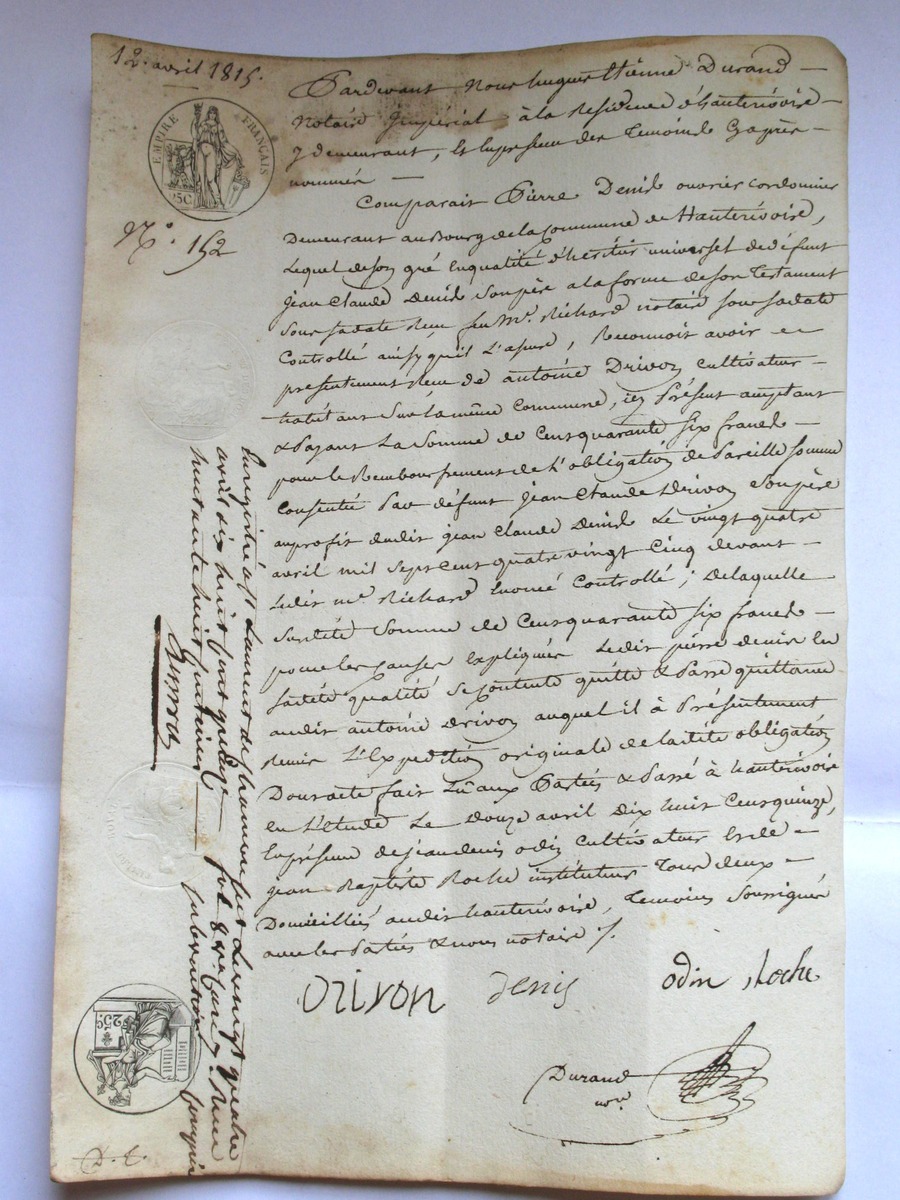 12. avril 1815.
EMPIRE FRANÇAIS
75C
N.° 152
Pardevant Nous hugues Etienne Durand
Notaire Impérial à la Résidence d'hauterivoire
y demeurant, Et En présence des Temoins Cy après
nommés
Comparait Pierre Denis ouvrier cordonnier
Demeurant au Bourg de la Commune de Hauterivoire,
Lequel de son gré En qualité d'héritier universel de défunt
jean Claude Denis Son père a la forme de son Testament
Sous sa date Reçu feu M.e Richard notaire sous sa date
Controllé ainsy qu'il L'assure, Reconnoit avoir
présentement Reçu de antoine Drivon cultivateur
habitant Sur la même Commune, icy Présent acceptant
& Payant La Somme de Cent quarante Six francs
pour le Remboursement de L'obligation de Pareille somme
Consentie Par défunt jean Claude Drivon Son père
au profit dudit jean Claude Denis Le vingt quatre
avril mil Sept Cent quatre vingt Cinq devant
Ledit m.e Richard Enoncé Controllé; De laquelle
Susdite Somme de Cent quarante Six francs
pour les Causes Expliquées Ledit pierre denis En
sadite qualité Se contente quitte & Passe quittance
audit antoine Drivon auquel il à Présentement
Remis L'Expedition originale de ladite obligation
Dont acte fait Lû aux Parties & Passé à hauterivoire
En L'Etude Le Douze avril Dix huit Cent quinze,
En présence de jean denis odin cultivateur & de
jean Baptiste Roche instituteur Tous deux
Domiciliés audit hauterivoire, Temoins Soussignés
avec les Parties & nous notaire /.
Drivon denis odin Roche
Durand
no.re
Enregistré à St Laurent de Chamousset Le vingt quatre
avril dix huit Cent quinze fol. 8 Reçu
huit Centimes subvention Comprise
25C
D. C.